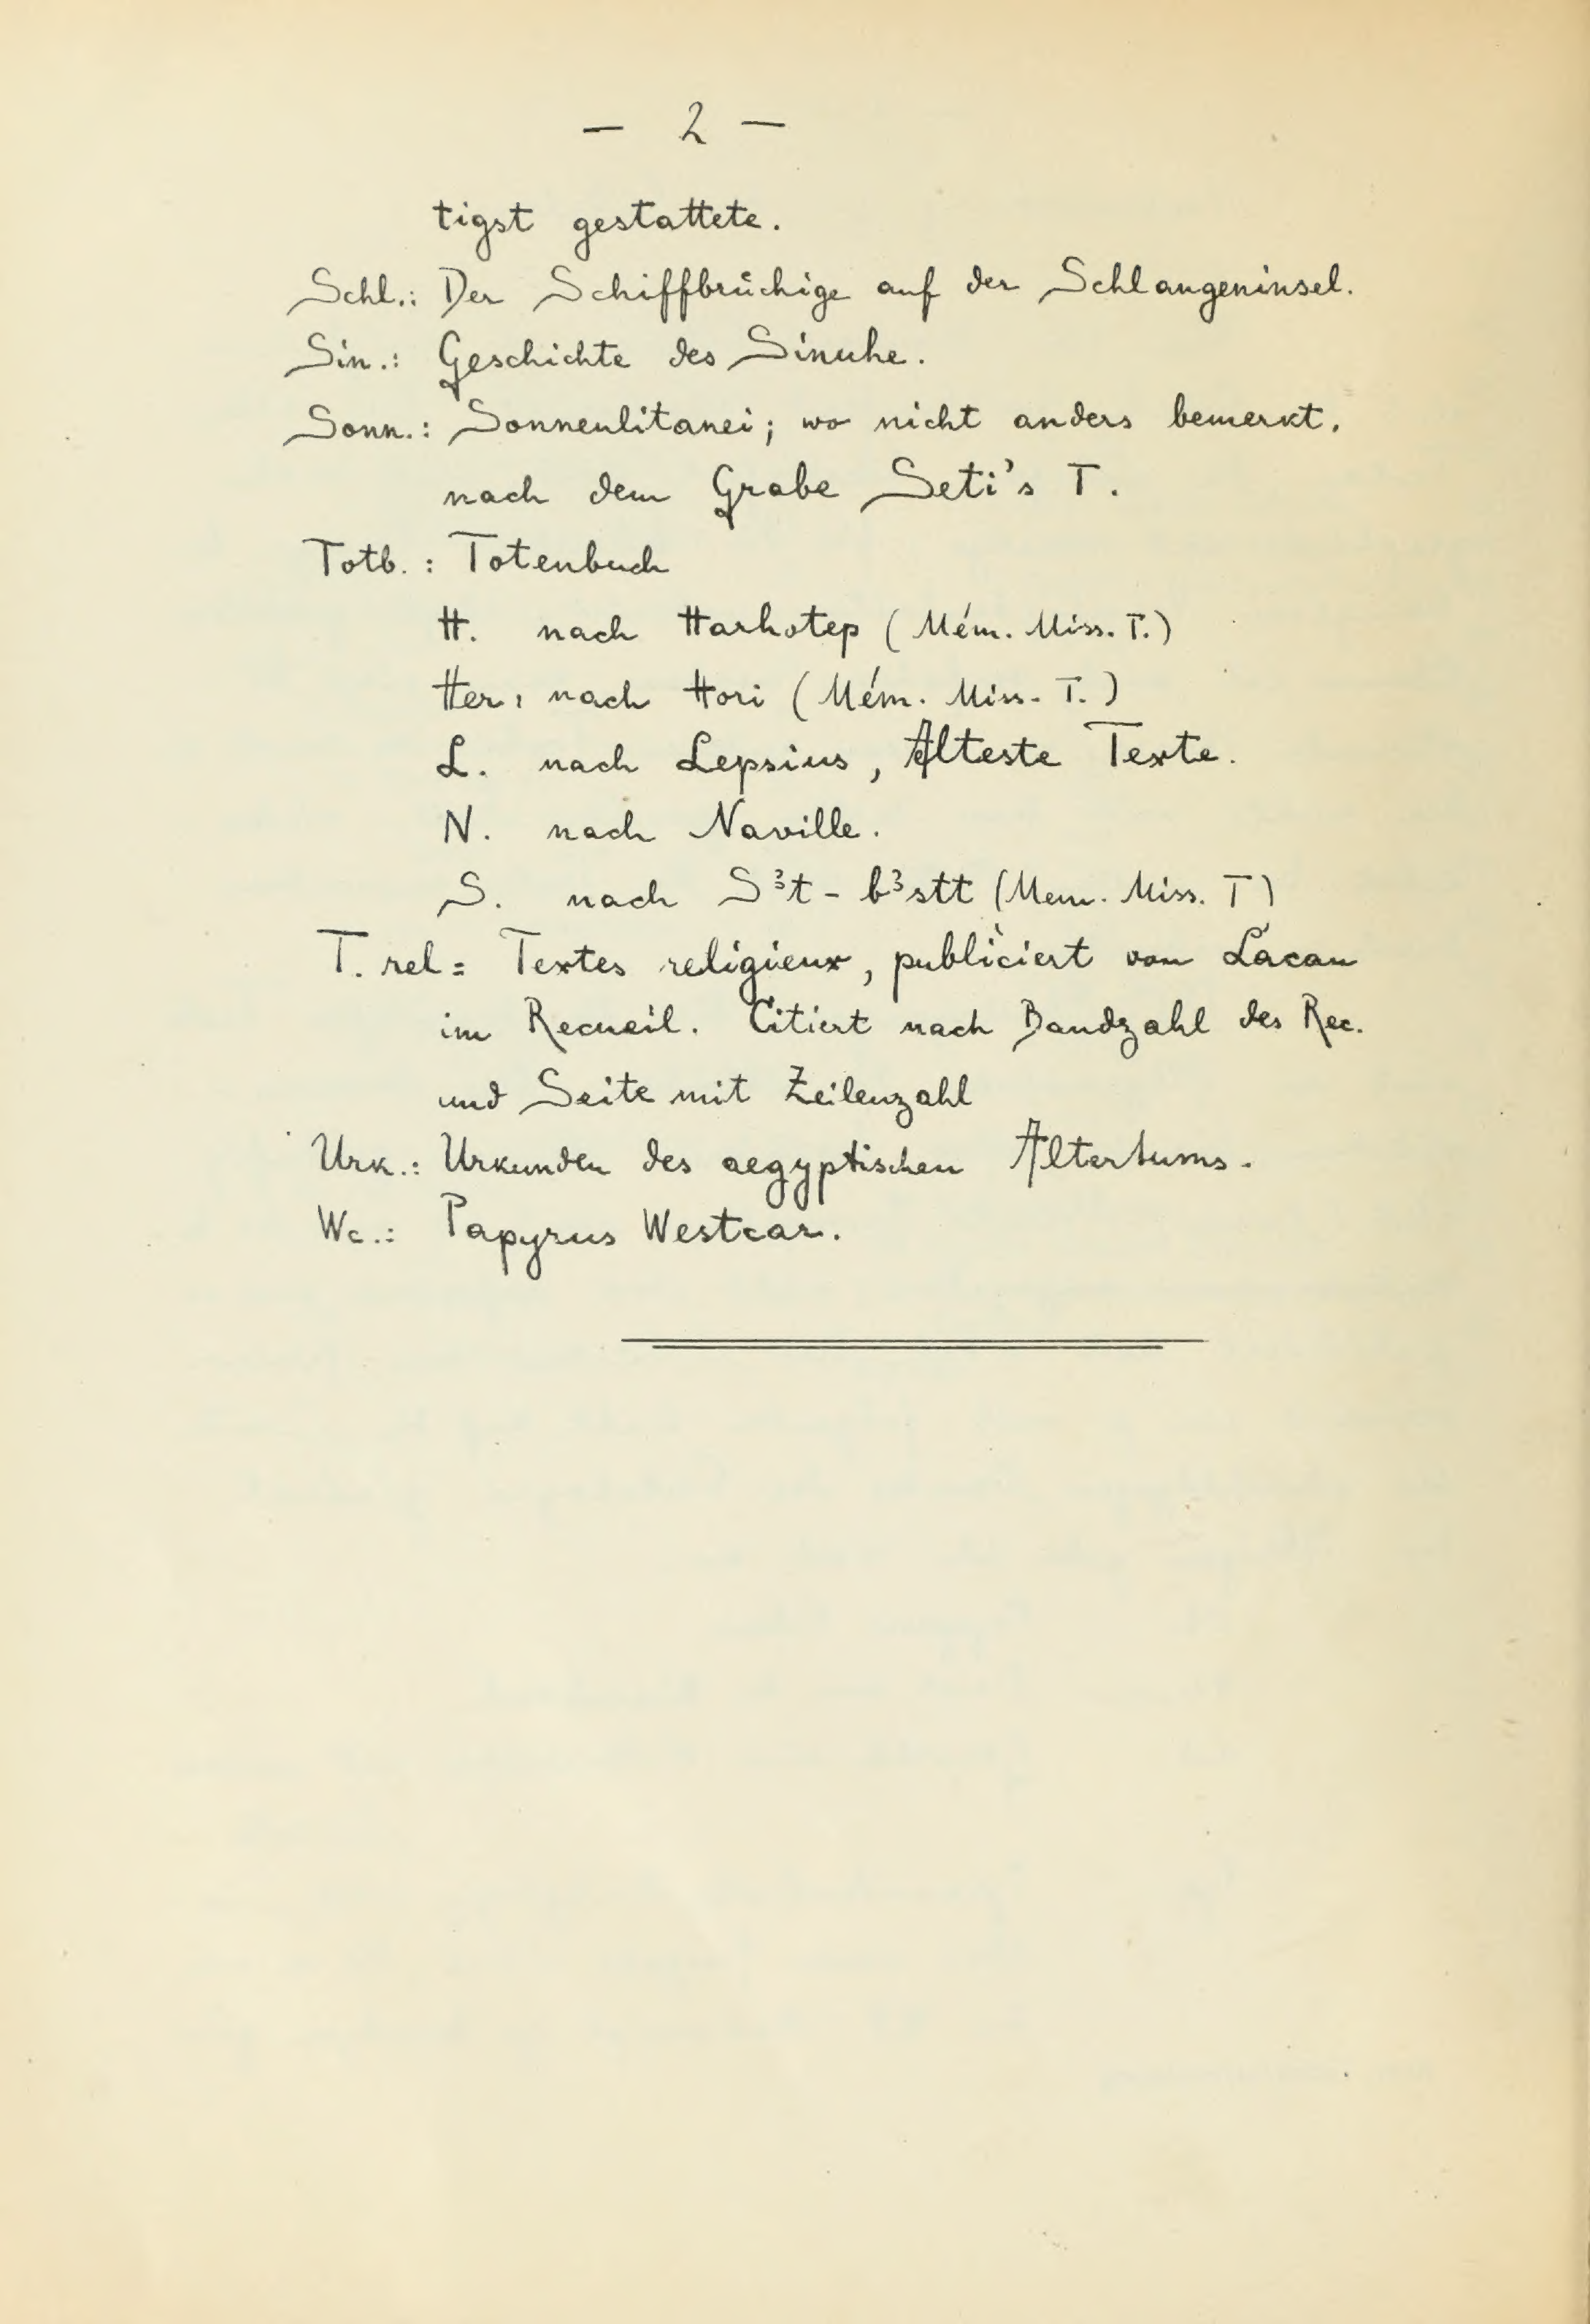 — 2 —
tigst gestattete.
Schl.: Der Schiffbrüchige auf der Schlangeninsel.
Sin.: Geschichte des Sinuhe.
Sonn.: Sonnenlitanei; wo nicht anders bemerkt,
nach dem Grabe Seti's I.
Totb.: Totenbuch
H. nach Harhotep (Mém. Miss. I.)
Her. nach Hori (Mém. Miss. I.)
L. nach Lepsius, Älteste Texte.
N. nach Naville.
S. nach Sꜣt-bꜣstt (Mem. Miss. I)
T. rel = Textes religieux, publiciert von Lacau
im Recueil. Citiert nach Bandzahl des Rec.
und Seite mit Zeilenzahl
Urk.: Urkunden des aegyptischen Altertums.
Wc.: Papyrus Westcar.